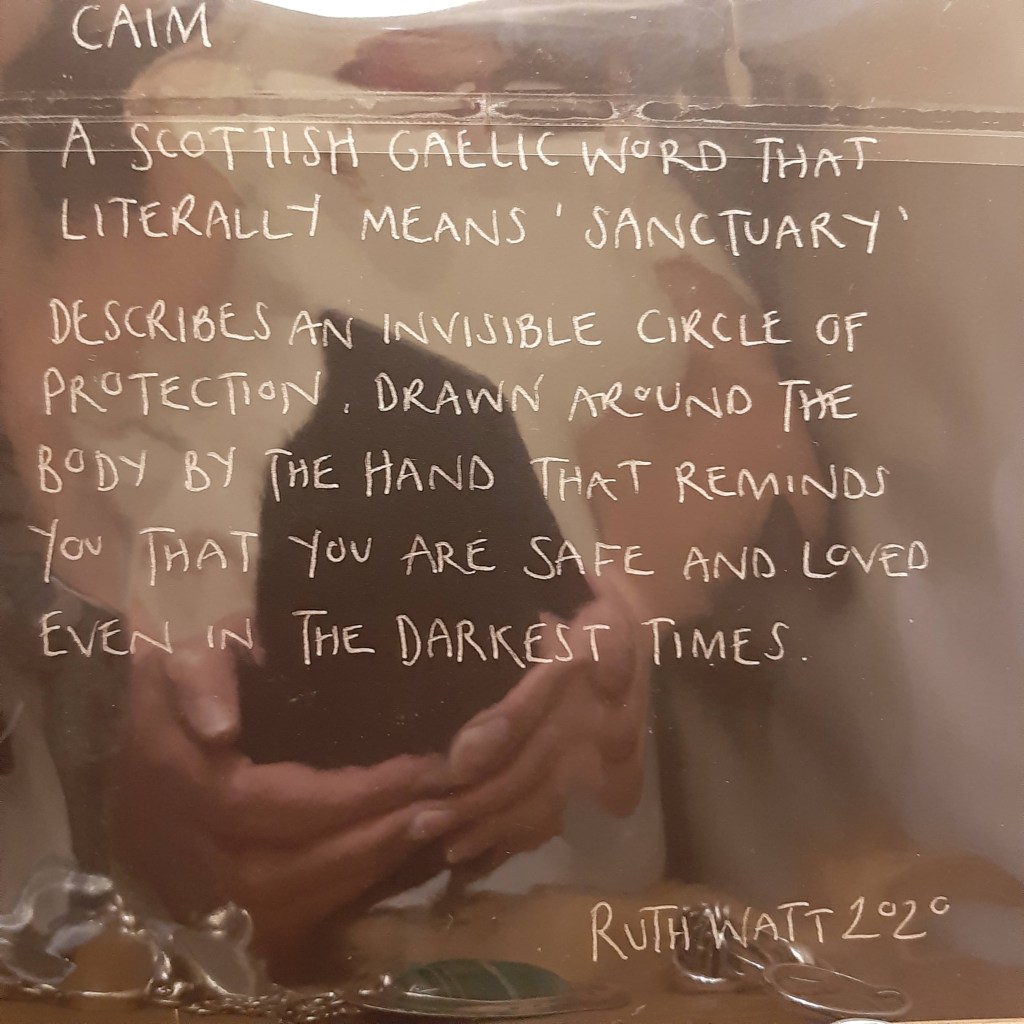 CAIM
A SCOTTISH GAELIC WORD THAT
LITERALLY MEANS 'SANCTUARY'
DESCRIBES AN INVISIBLE CIRCLE OF
PROTECTION, DRAWN AROUND THE
BODY BY THE HAND THAT REMINDS
YOU THAT YOU ARE SAFE AND LOVED
EVEN IN THE DARKEST TIMES.
RUTH WATT 2020